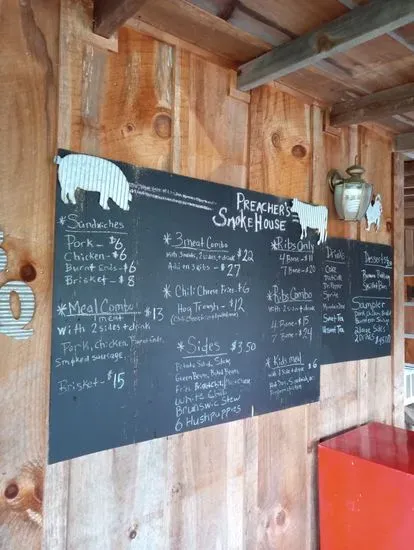 PREACHER'S
SMOKEHOUSE
* Sandwiches
Pork - $6
Chicken - $6
Burnt Ends - $6
Brisket - $8
* Meal Combo
1 meat $13
with 2 sides + drink
Pork, Chicken, Burnt Ends,
Smoked sausage.
Brisket - $15
* 3 meat Combo
with 2 sides + drink $22
Add on 3 ribs - $27
* Chili Cheese Fries - $6
Hog Trough - $12
* Sides $3.50
Potato Salad, Slaw
Green Beans, Baked Beans
Fries
White Chili
Brunswic Stew
6 Hushpuppies
* Ribs Only
4 Bone - $11
7 Bone - $20
* Ribs Combo
with 2 sides + drink
4 Bone - $15
7 Bone - $24
* Kids meal $6
with 1 side + drink
Drinks
Coke
Diet Coke
Dr. Pepper
Sprite
Sweet Tea
Unsweet Tea
Desserts
Banana Pudding
Sampler
2 large Sides
2 Drinks
Q